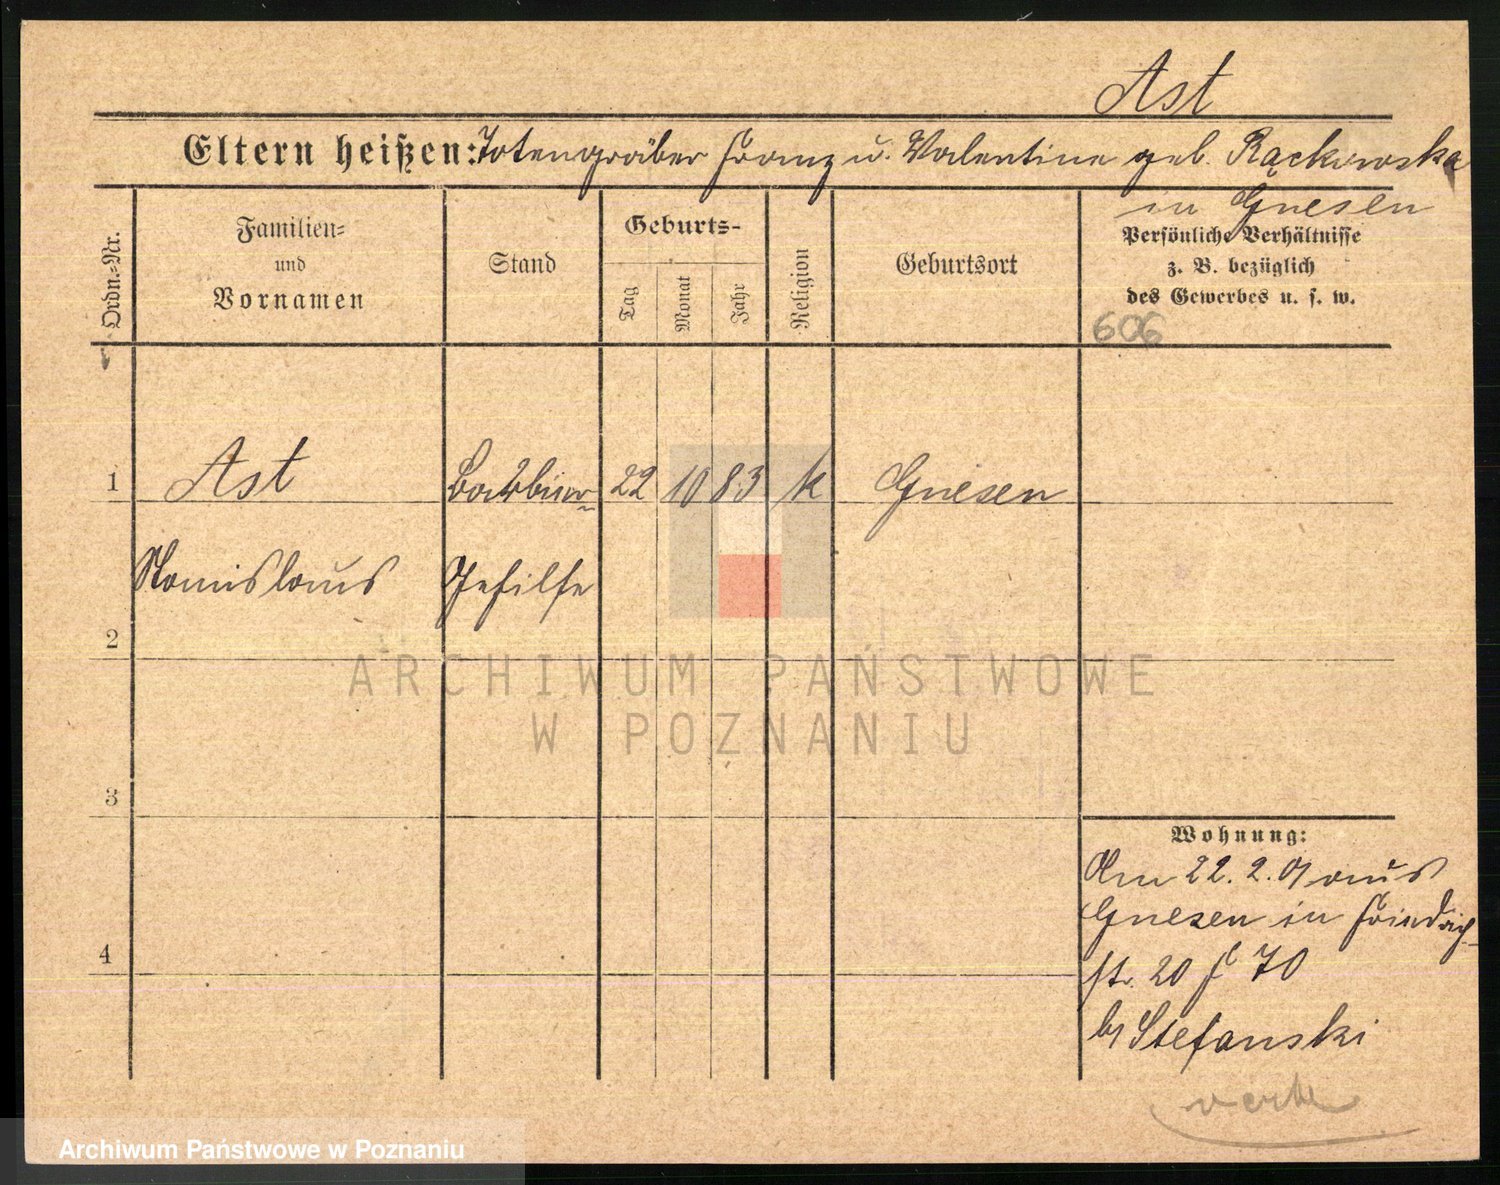 Ast
Eltern heißen: Totengräber Franz u. Valentine geb. Rąckowska
in Gnesen
Ordn.-Nr.
Familien-
und
Vornamen
Stand
Geburts-
Tag
Monat
Jahr
Religion
Geburtsort
Persönliche Verhältnisse
z. B. bezüglich
des Gewerbes u. s. w.
606
1 Ast Barbier 22 10 83 k Gnesen
Stanislaus Gehilfe
2
ARCHIWUM PAŃSTWOWE
W POZNANIU
3
Wohnung:
Am 22. 2. 01 aus
Gnesen in Friedrich-
4
str. 20 70
bei Stefanski
Archiwum Państwowe w Poznaniu